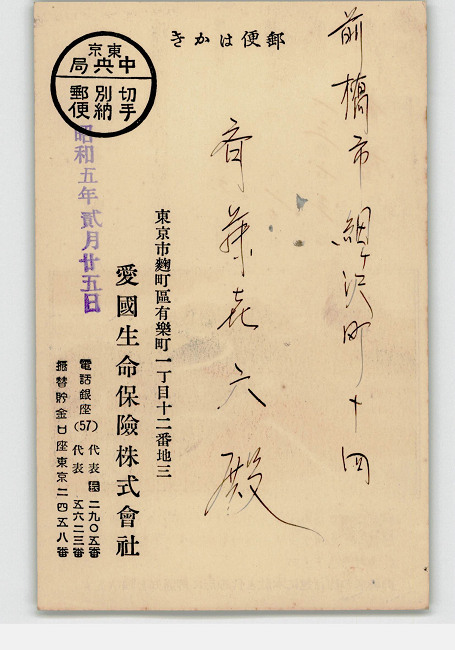 郵便はかき
東京
中央局
切手
別納
郵便
前橋市細ヶ沢町十四
斉藤㐂六殿
東京市麴町區有樂町一丁目十二番地三
愛國生命保險株式會社
電話銀座(57) 代表 二九〇五番
代表 五六二三番
振替貯金口座東京二四五八番
昭和五年貳月廿五日